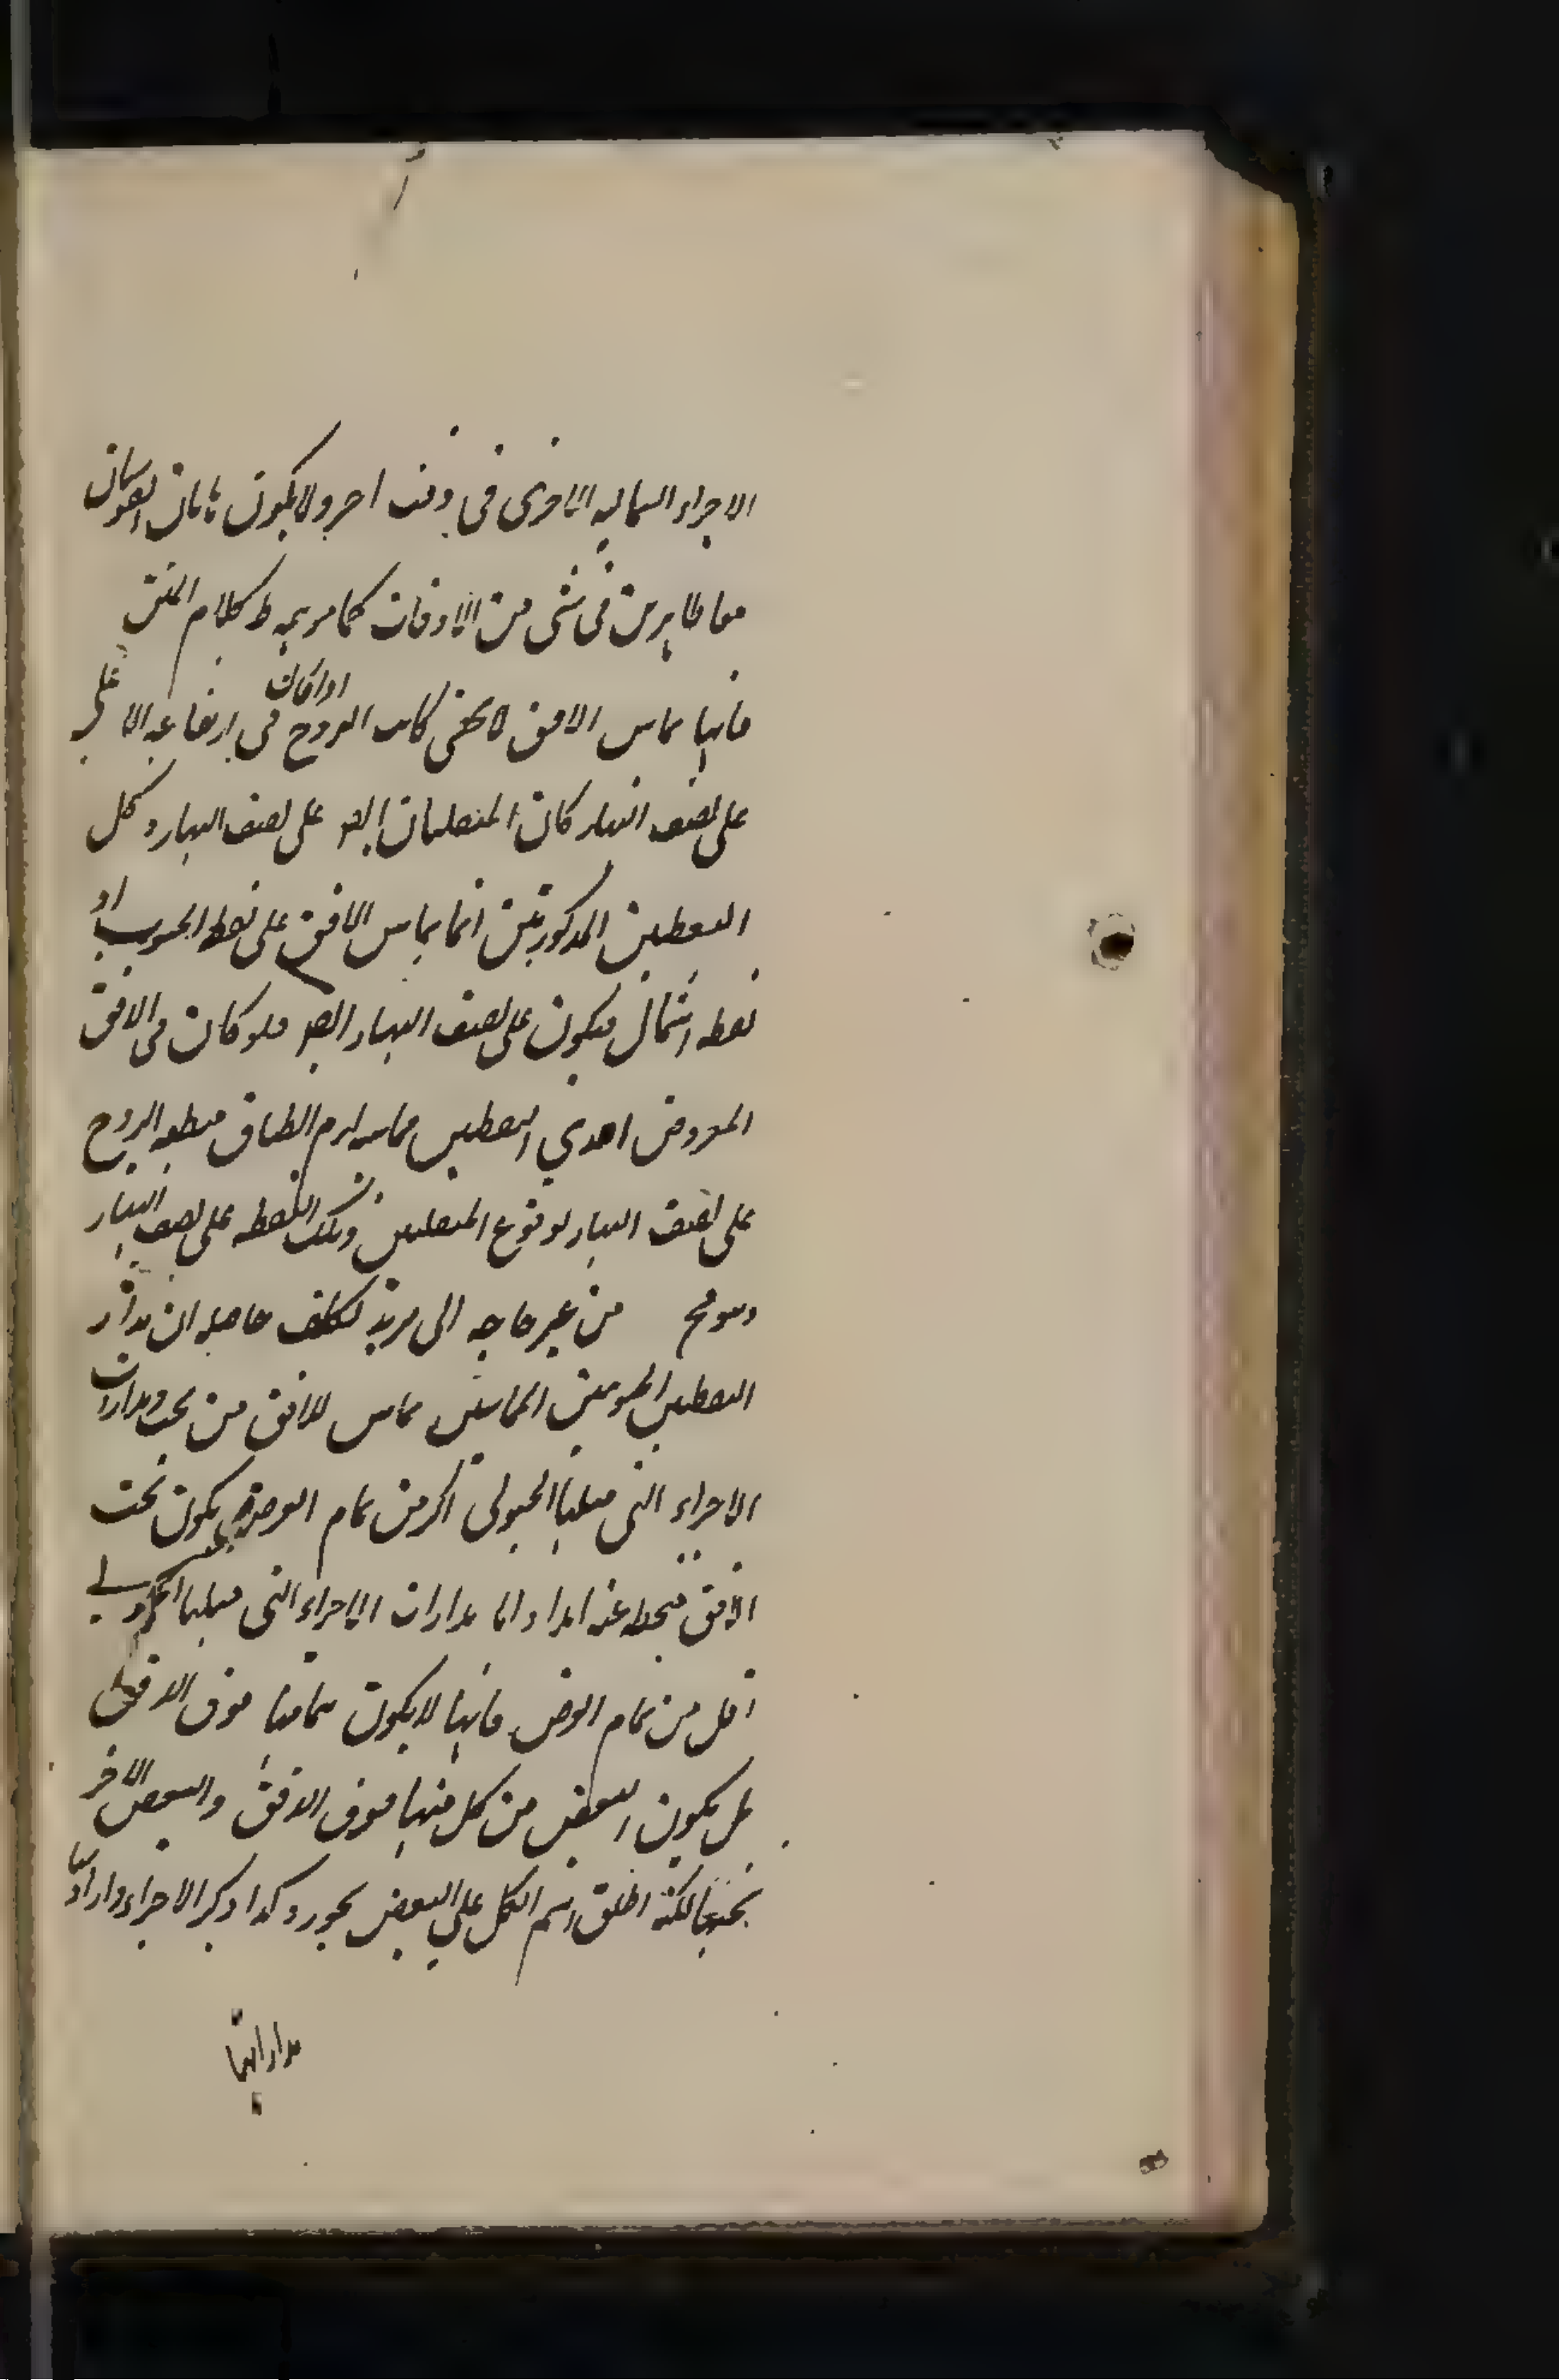 الاجزاء الشمالية الاخرى فى وقت اخر ولا يكون هاتان القوسان
معا ظاهرتين فى شى من الاوقات كما مر كلام المتن
فانها تماس الافق لا يخفى كانت البروج اذا كان فى ارتفاعه الاعلى
على نصف النهار كان المنقلبان ايضا على نصف النهار وكل
النقطتين المذكورتين انما يماس الافق على نقطة الجنوب او
نقطة الشمال فيكون على نصف النهار ايضا فلو كان فى الافق
المعروض احدي النقطتين مماسة لزم انطباق منطقة البروج
على نصف النهار لوقوع المنقلبين وتلك النقطة على نصف النهار
وهو مح من غير حاجة الى مزيد تكلف حاصله ان مدار
النقطتين الجنوبيتين المماستين مماس للافق من تحت ومدارات
الاجزاء التى ميلها الجنوبى اكثر من تمام العرض يكون تحت
الافق منحطة عنه ابدا واما مدارات الاجزاء التى ميلها الجنوبى
اقل من تمام العرض فانها لا يكون بتمامها فوق الافق
بل يكون البعض من كل منها فوق الافق والبعض الاخر
تحتها لكنه اطلق اسم الكل على البعض تجوز وكذا ذكر الاجزاء واراد بها
مداراتها